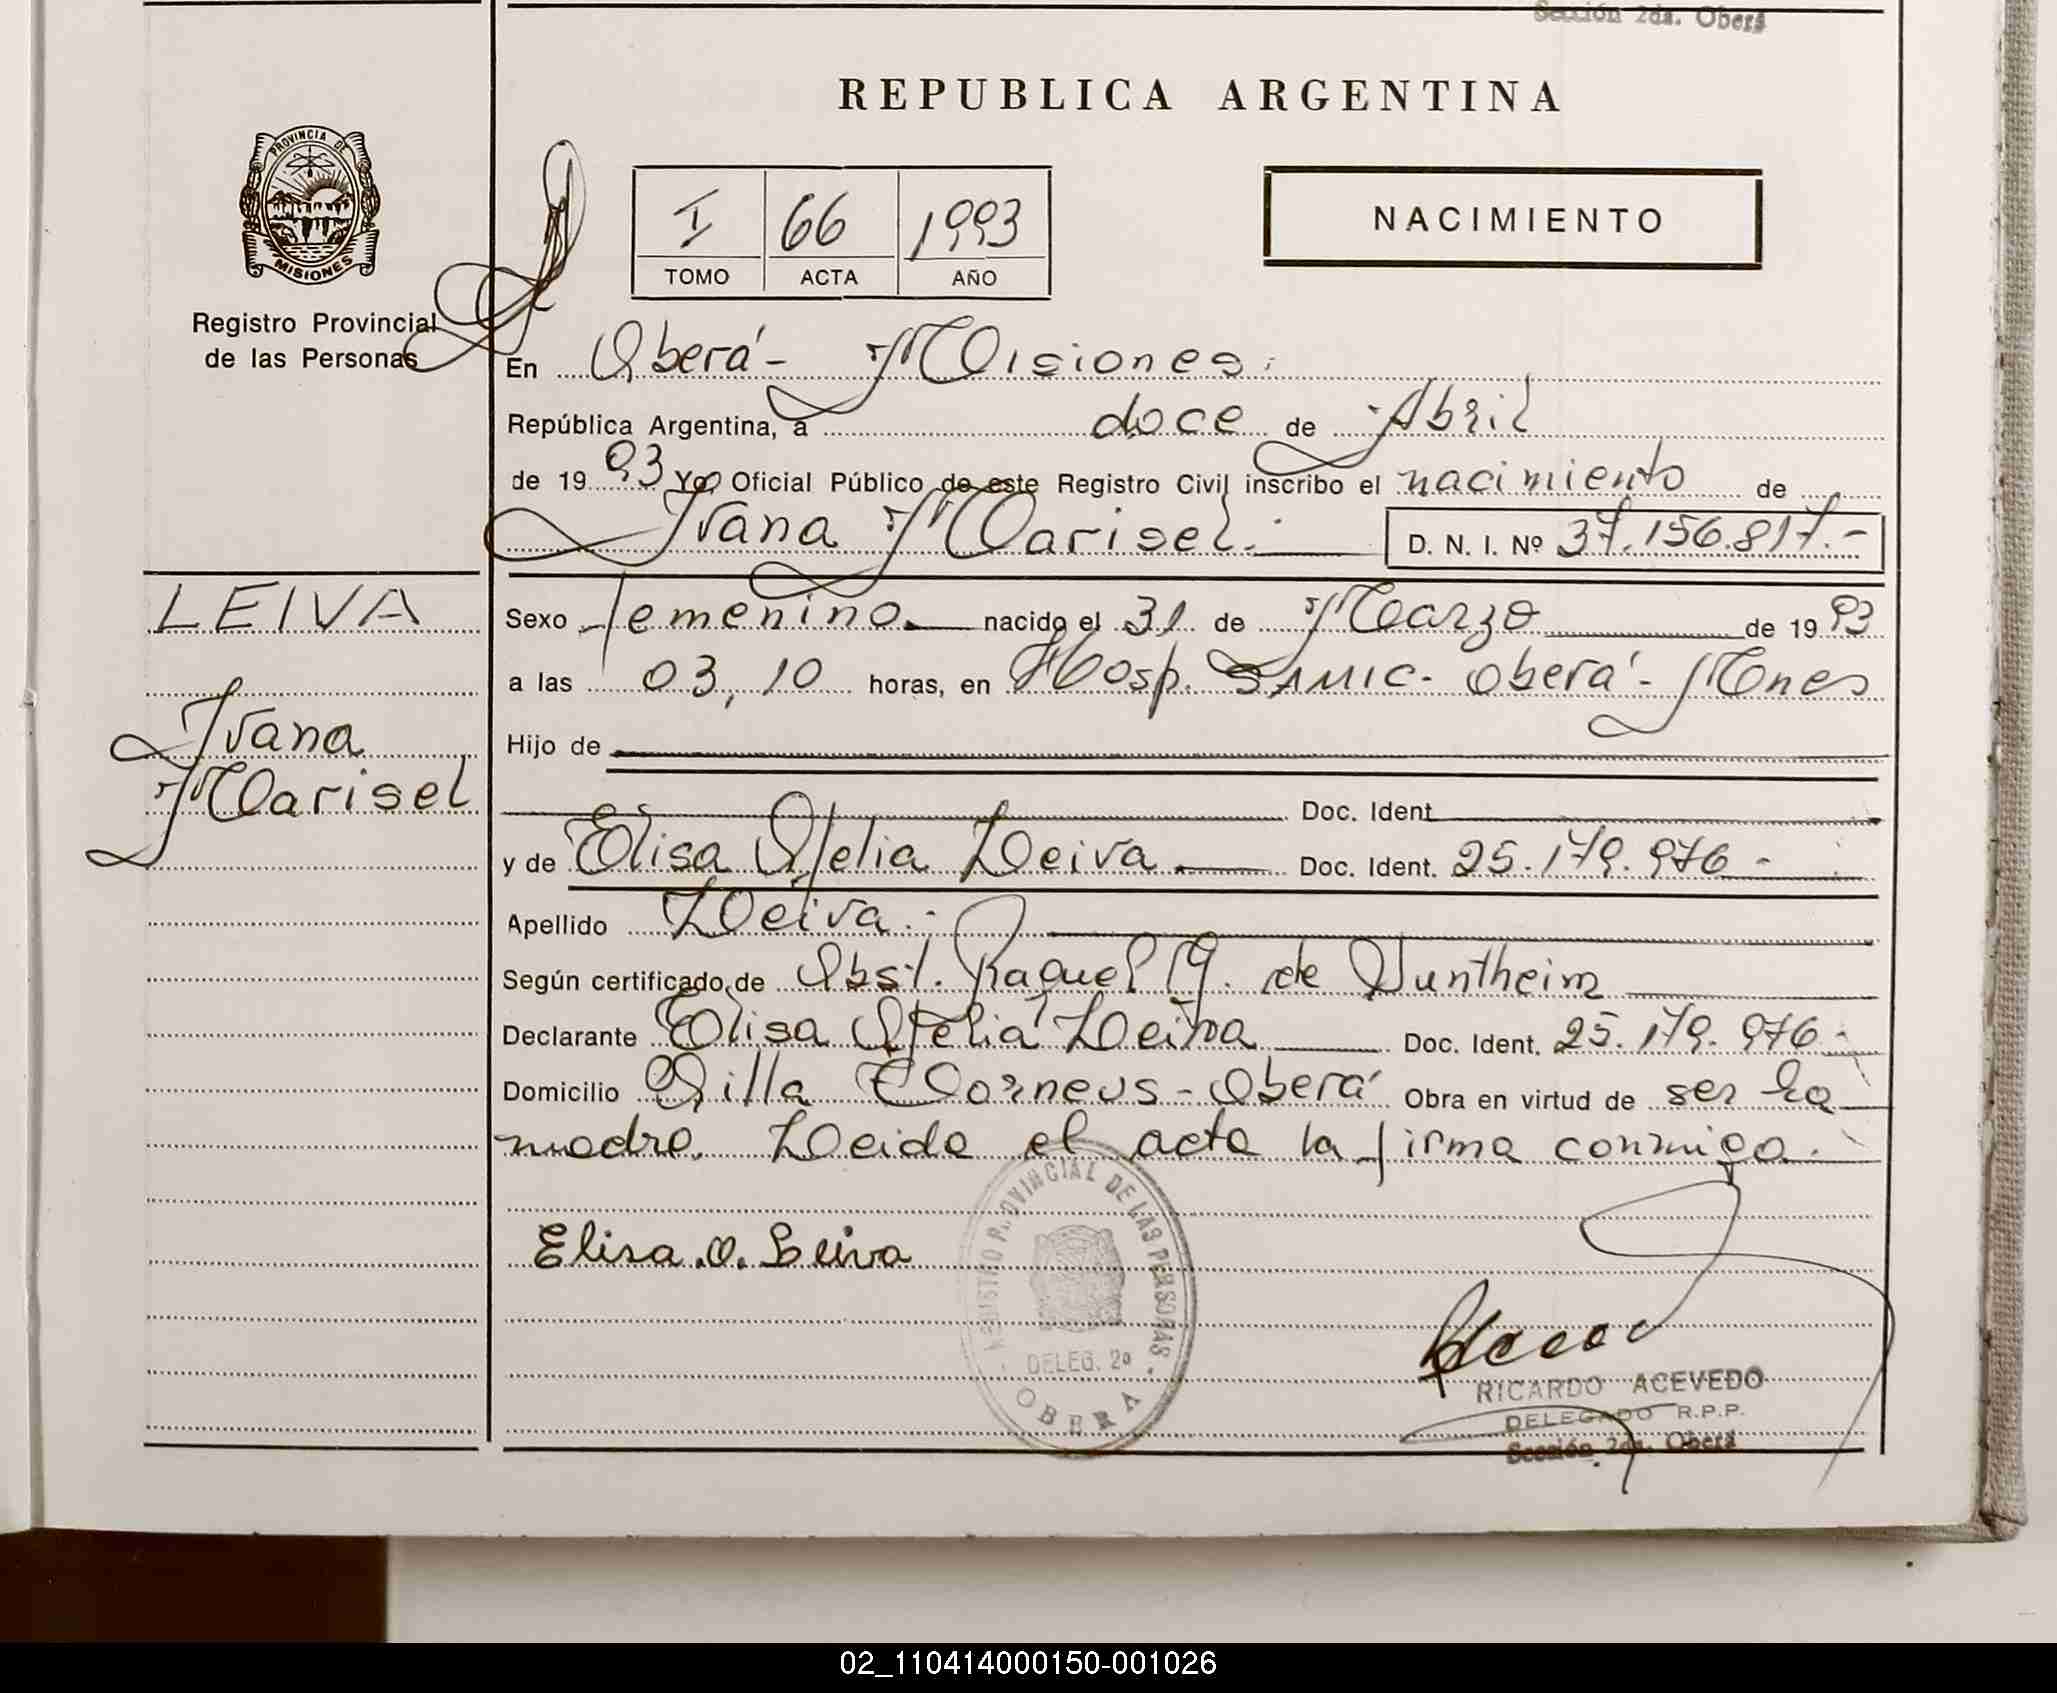 Sección 2da. Oberá
REPUBLICA ARGENTINA
PROVINCIA DE
MISIONES
Registro Provincial
de las Personas
I 66 1993
TOMO ACTA AÑO
NACIMIENTO
En Oberá - Misiones.
República Argentina, a doce de Abril
de 1993 Yo, Oficial Público de este Registro Civil inscribo el nacimiento de
Ivana Marisel.- D. N. I. Nº 37.156.817.-
LEIVA
Ivana
Marisel
Sexo femenino nacido el 31 de Marzo de 1993
a las 03,10 horas, en Hosp. SAMIC- Oberá - Mnes
Hijo de
Doc. Ident
y de Elisa Ofelia Leiva Doc. Ident. 25.179.976 -
Apellido Leiva.-
Según certificado de Obst. Raquel G. de
Declarante Elisa Ofelia Leiva Doc. Ident. 25.179.976-
Domicilio Villa - Oberá Obra en virtud de ser la
madre. Leida el acta la firma conmigo.
Elisa.O.Leiva
REGISTRO PROVINCIAL DE LAS PERSONAS
DELEG. 2a
OBERA
RICARDO ACEVEDO
DELEGADO R.P.P.
Sección 2da. Oberá
02_110414000150-001026